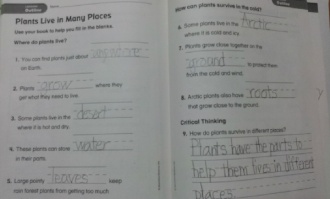 Outline
Name
Plants Live in Many Places
Use your book to help you fill in the blanks.
Where do plants live?
1. You can find plants just about
on Earth.
2. Plants grow where they
get what they need to live.
3. Some plants live in the desert
where it is hot and dry.
4. These plants can store water
in their parts.
5. Large pointy leaves keep
rain forest plants from getting too much
How can plants survive in the cold?
6. Some plants live in the Arctic
where it is cold and icy.
7. Plants grow close together on the
ground to protect them
from the cold and wind.
8. Arctic plants also have roots
that grow close to the ground.
Critical Thinking
9. How do plants survive in different places?
Plants have the parts to
help them lives in different
places